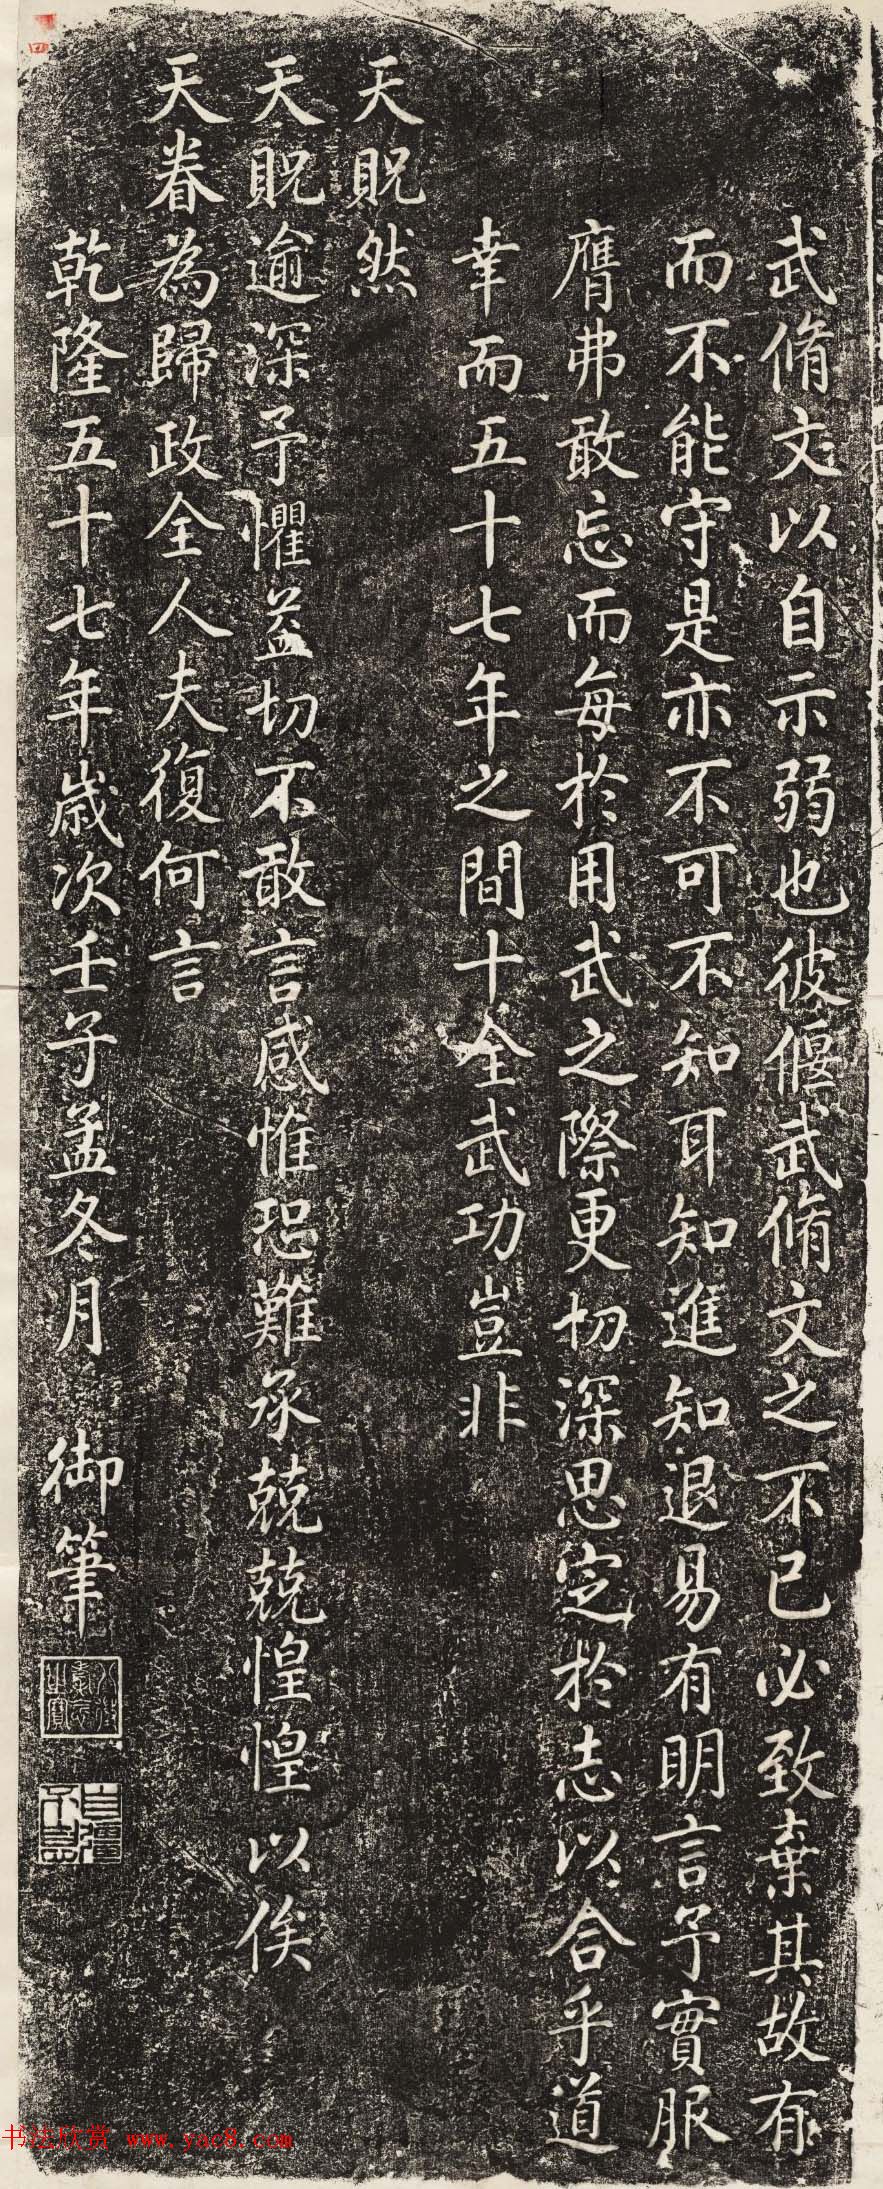 武脩文以自示弱也彼偃武脩文之不已必致棄其故有
而不能守是亦不可不知耳知進知退易有明言予實服
膺弗敢忘而每於用武之際更切深思定於志以合乎道
幸而五十七年之間十全武功豈非
天貺然
天貺逾深予懼益切不敢言感惟恐難承兢兢惶惶以俟
天眷為歸政全人夫復何言
乾隆五十七年歲次壬子孟冬月 御筆
八徵耄念之寶
自彊不息
书法欣赏 www.yac8.com